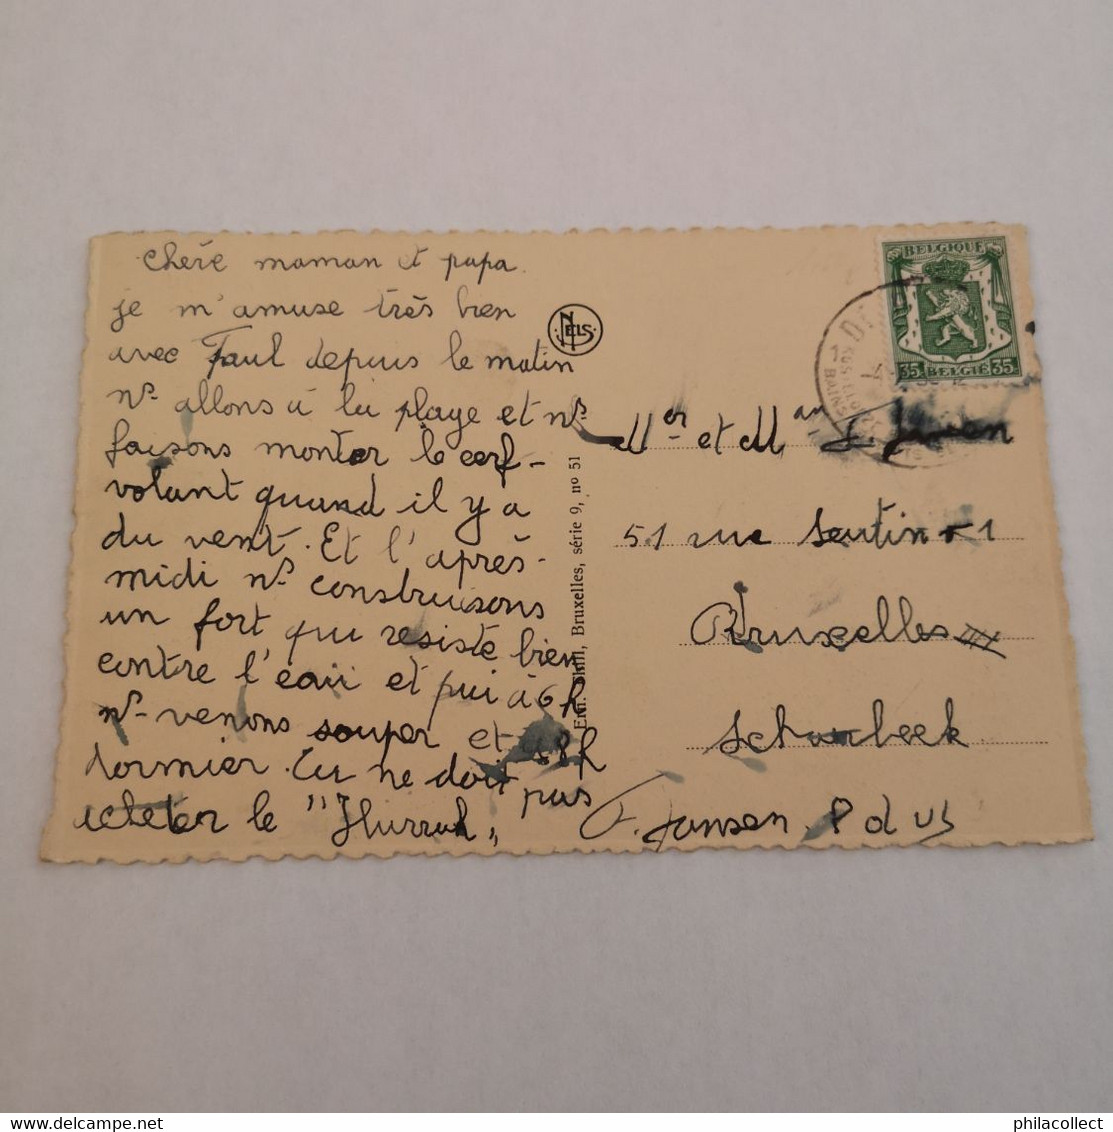 chère maman et papa.
je m'amuse très bien
avec Paul depuis le matin
ns allons à la plage et ns
faisons monter le cerf-
volant quand il y a
du vent. Et l'après-
midi ns construisons
un fort qui resiste bien
contre l'eau et pui à 6h
ns venons souper et 8h
dormier. Tu ne doit pas
acheter le "Hurrah"
NELS
Bruxelles, série 9, no 51
BELGIQUE
35 BELGIE 35
Mer et Mm
51 rue
Bruxelles III
Scharbeek
F. Jansen.
philacollect